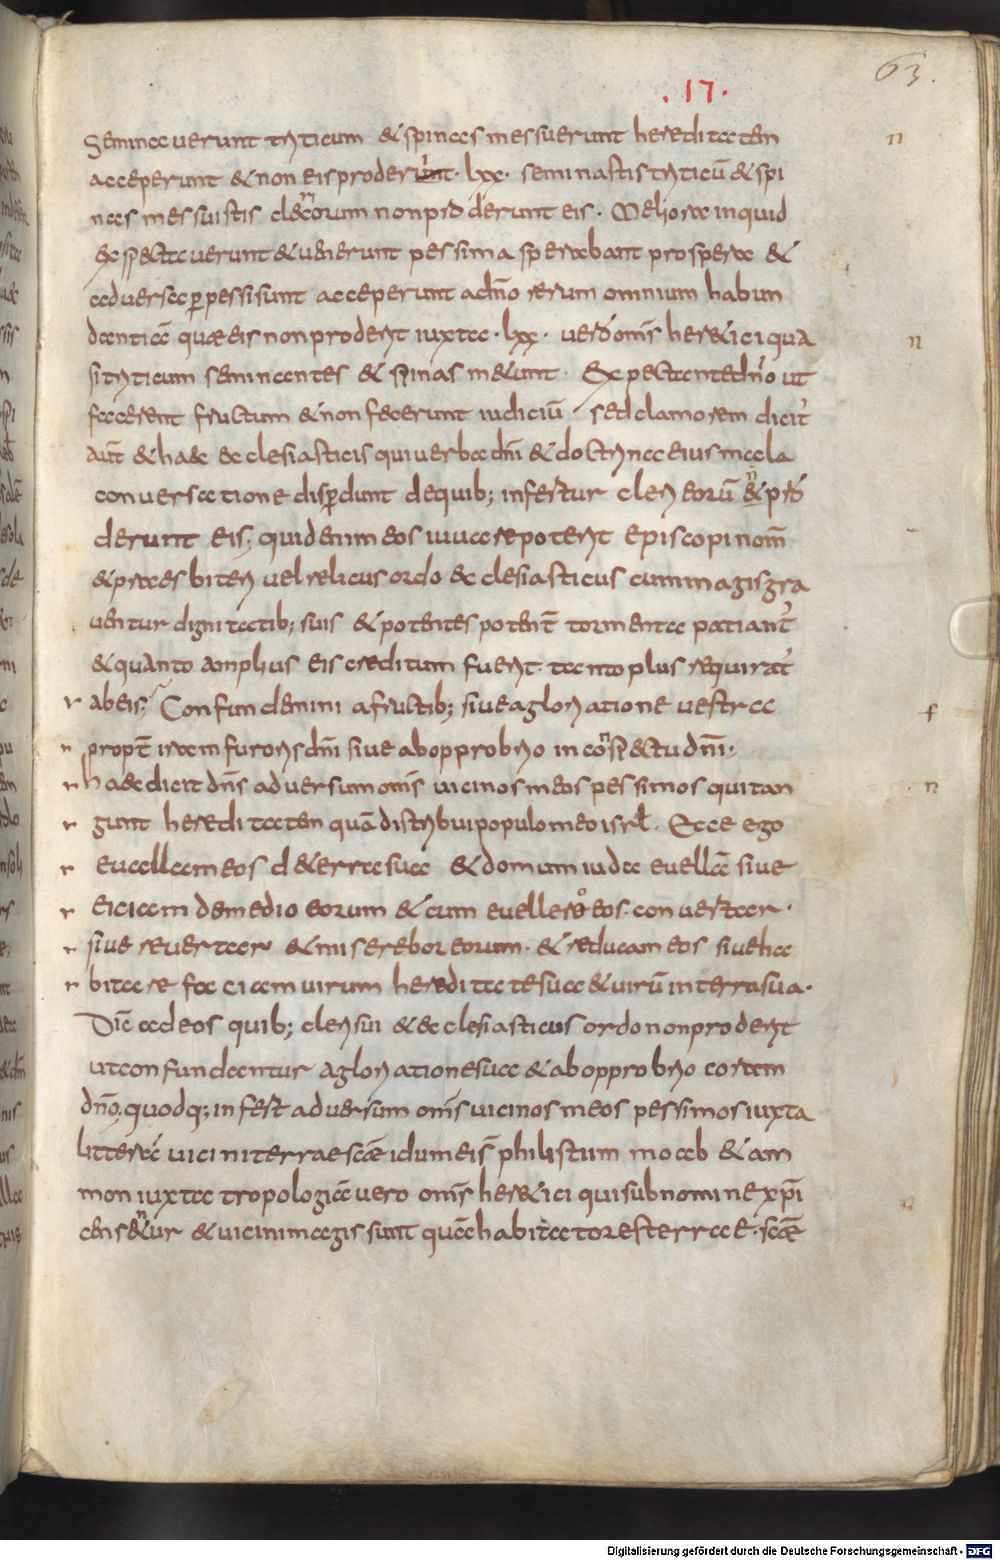 63.
.17.
Seminauerunt triticum & spinas messuerunt hereditatem
acceperunt & non eis proderunt. lxx. seminastis triticū & spi
nas messuistis clericorum non proderunt eis. Meliora inquid
expectauerunt & uenerunt pessima sperabant prospera &
aduersa ꝑpessi sunt acceperunt a dn̄o rerum omnium habun
dantiā quae eis non proderit iuxta. lxx. uero om̄s heretici qua
si triticum seminantes & spinas metunt. Expectante dn̄o ut
facerent fructum & non fecerunt iudiciū sed clamorem dicit᷑
aut̄ & haec ecclesiasticis qui uerba dn̄i & doctrinae eius mala
conuersatione disꝑdunt de quib; infertur cleri eorū n̄ pro
derunt eis; quid enim eos iuuare poterit episcopi nom̄
& praesbiteri uel relicus ordo ecclesiasticus cum magis gra
uentur dignitatib; suis & potentes potent̄ tormenta patiant᷑
& quanto amplius eis creditum fuerit tanto plus requirat᷑
r ab eis; Confundemini a fructib; siue a gloriatione uestra f
r propt̄ iram furoris dn̄i siue ab opprobrio in conspectu dn̄i.
r haec dicit dn̄s aduersum om̄s uicinos meos pessimos qui tan n
r gunt hereditatem quā distribui populo meo isrł. Ecce ego
r euellam eos de terra sua & domum iuda euellā siue
r eiciam de medio eorum & cum euellero eos. conuertar.
r siue reuertar & miserebor eorum. & reducam eos siue ha
r bitare faciam uirum hereditate sua & uirū in terra sua.
Dic̄ ad eos quib; cleri sui & ecclesiasticus ordo non proderit
ut confundantur a gloriatione sua & ab opprobrio coram
dn̄o. quodq; infert aduersum om̄s uicinos meos pessimos iuxta
litterā uicini terrae scāe idumei s̄ philistiim moab & am
mon iuxta tropologiā uero om̄s heretici qui sub nomine xp̄i
censentur & uicini magis sunt quā habitatores terrae scāe
Digitalisierung gefördert durch die Deutsche Forschungsgemeinschaft - DFG